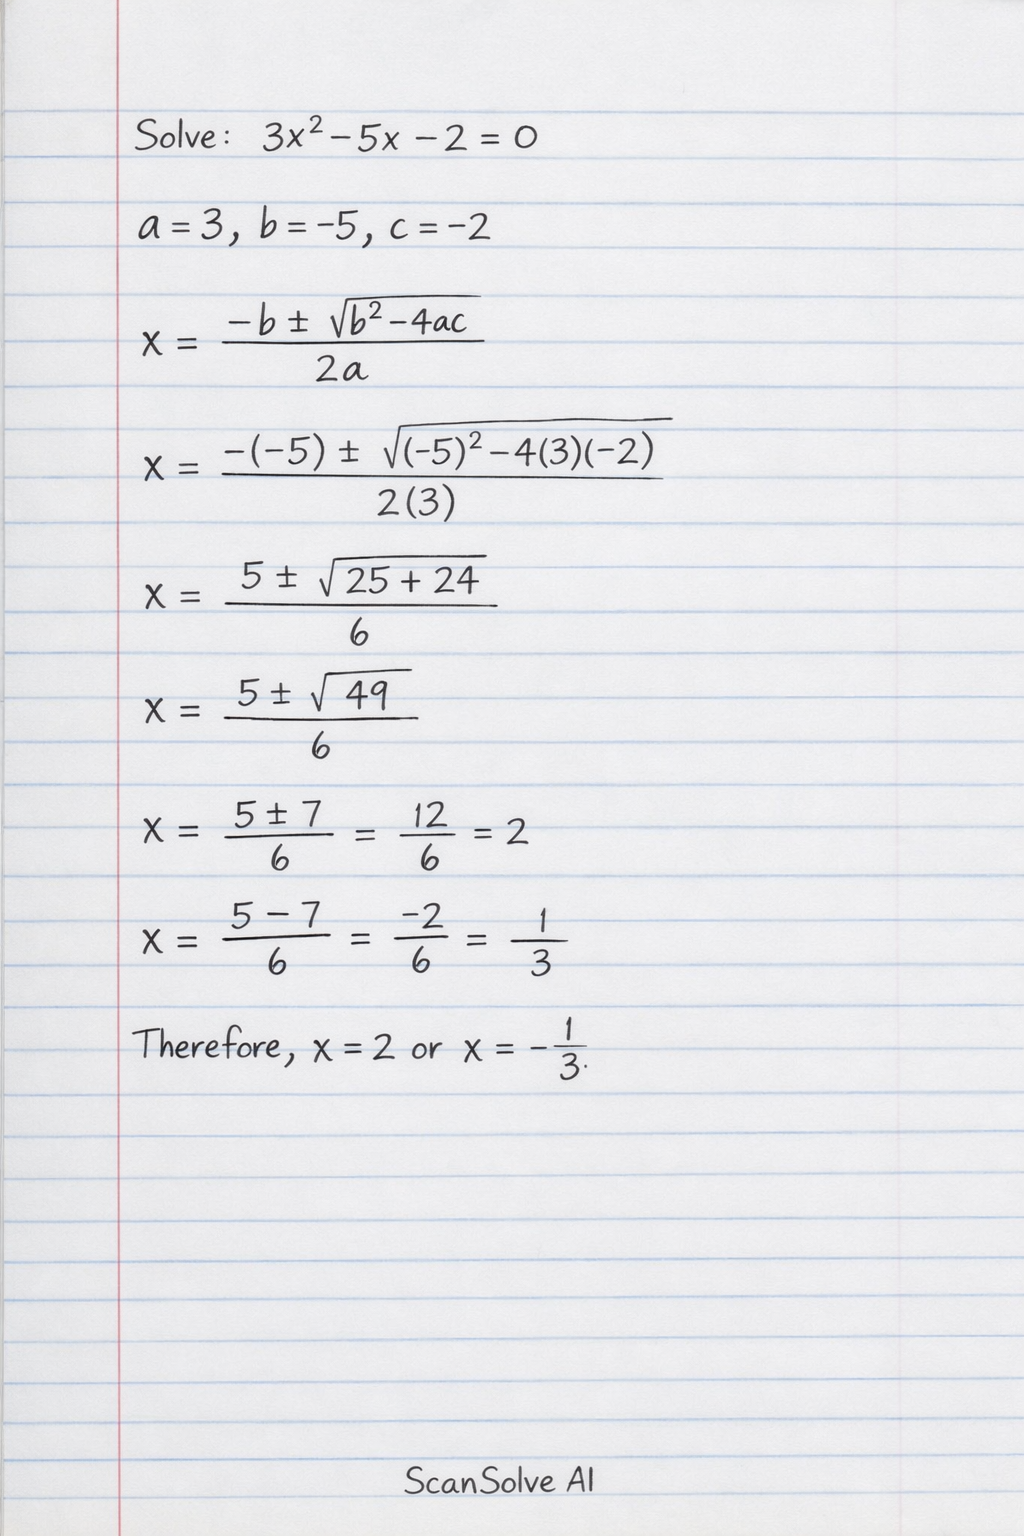 Solve: 3x² − 5x − 2 = 0
a = 3, b = −5, c = −2
x = (−b ± √(b² − 4ac)) / (2a)
x = (−(−5) ± √((−5)² − 4(3)(−2))) / (2(3))
x = (5 ± √(25 + 24)) / 6
x = (5 ± √49) / 6
x = (5 ± 7) / 6 = 12/6 = 2
x = (5 − 7) / 6 = −2/6 = 1/3
Therefore, x = 2 or x = −1/3.
ScanSolve AI